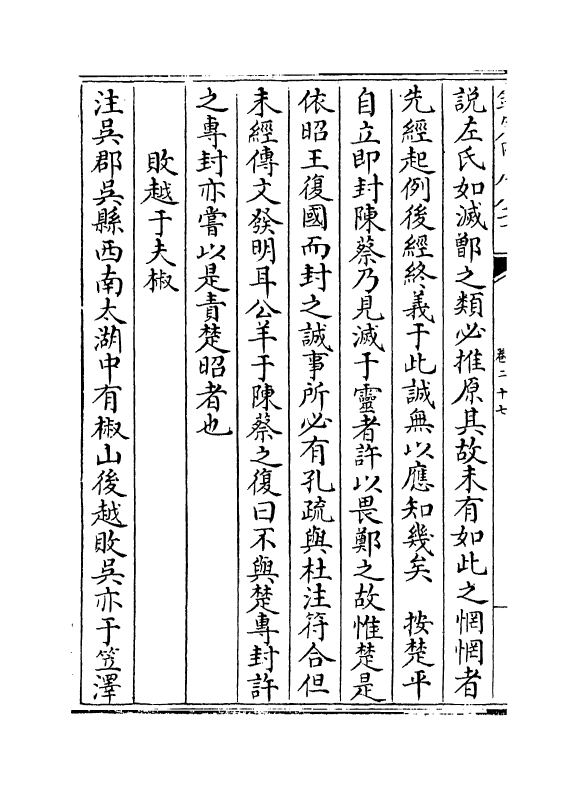 卷二十七
說左氏如滅鄫之類必推原其故未有如此之惘惘者
先經起例後經終義于此誠無以應知幾矣　按楚平
自立即封陳蔡乃見滅于靈者許以畏鄭之故惟楚是
依昭王復國而封之誠事所必有孔疏與杜注符合但
未經傳文發明耳公羊于陳蔡之復曰不與楚專封許
之專封亦嘗以是責楚昭者也
敗越于夫椒
注吳郡吳縣西南太湖中有椒山後越敗吳亦于笠澤